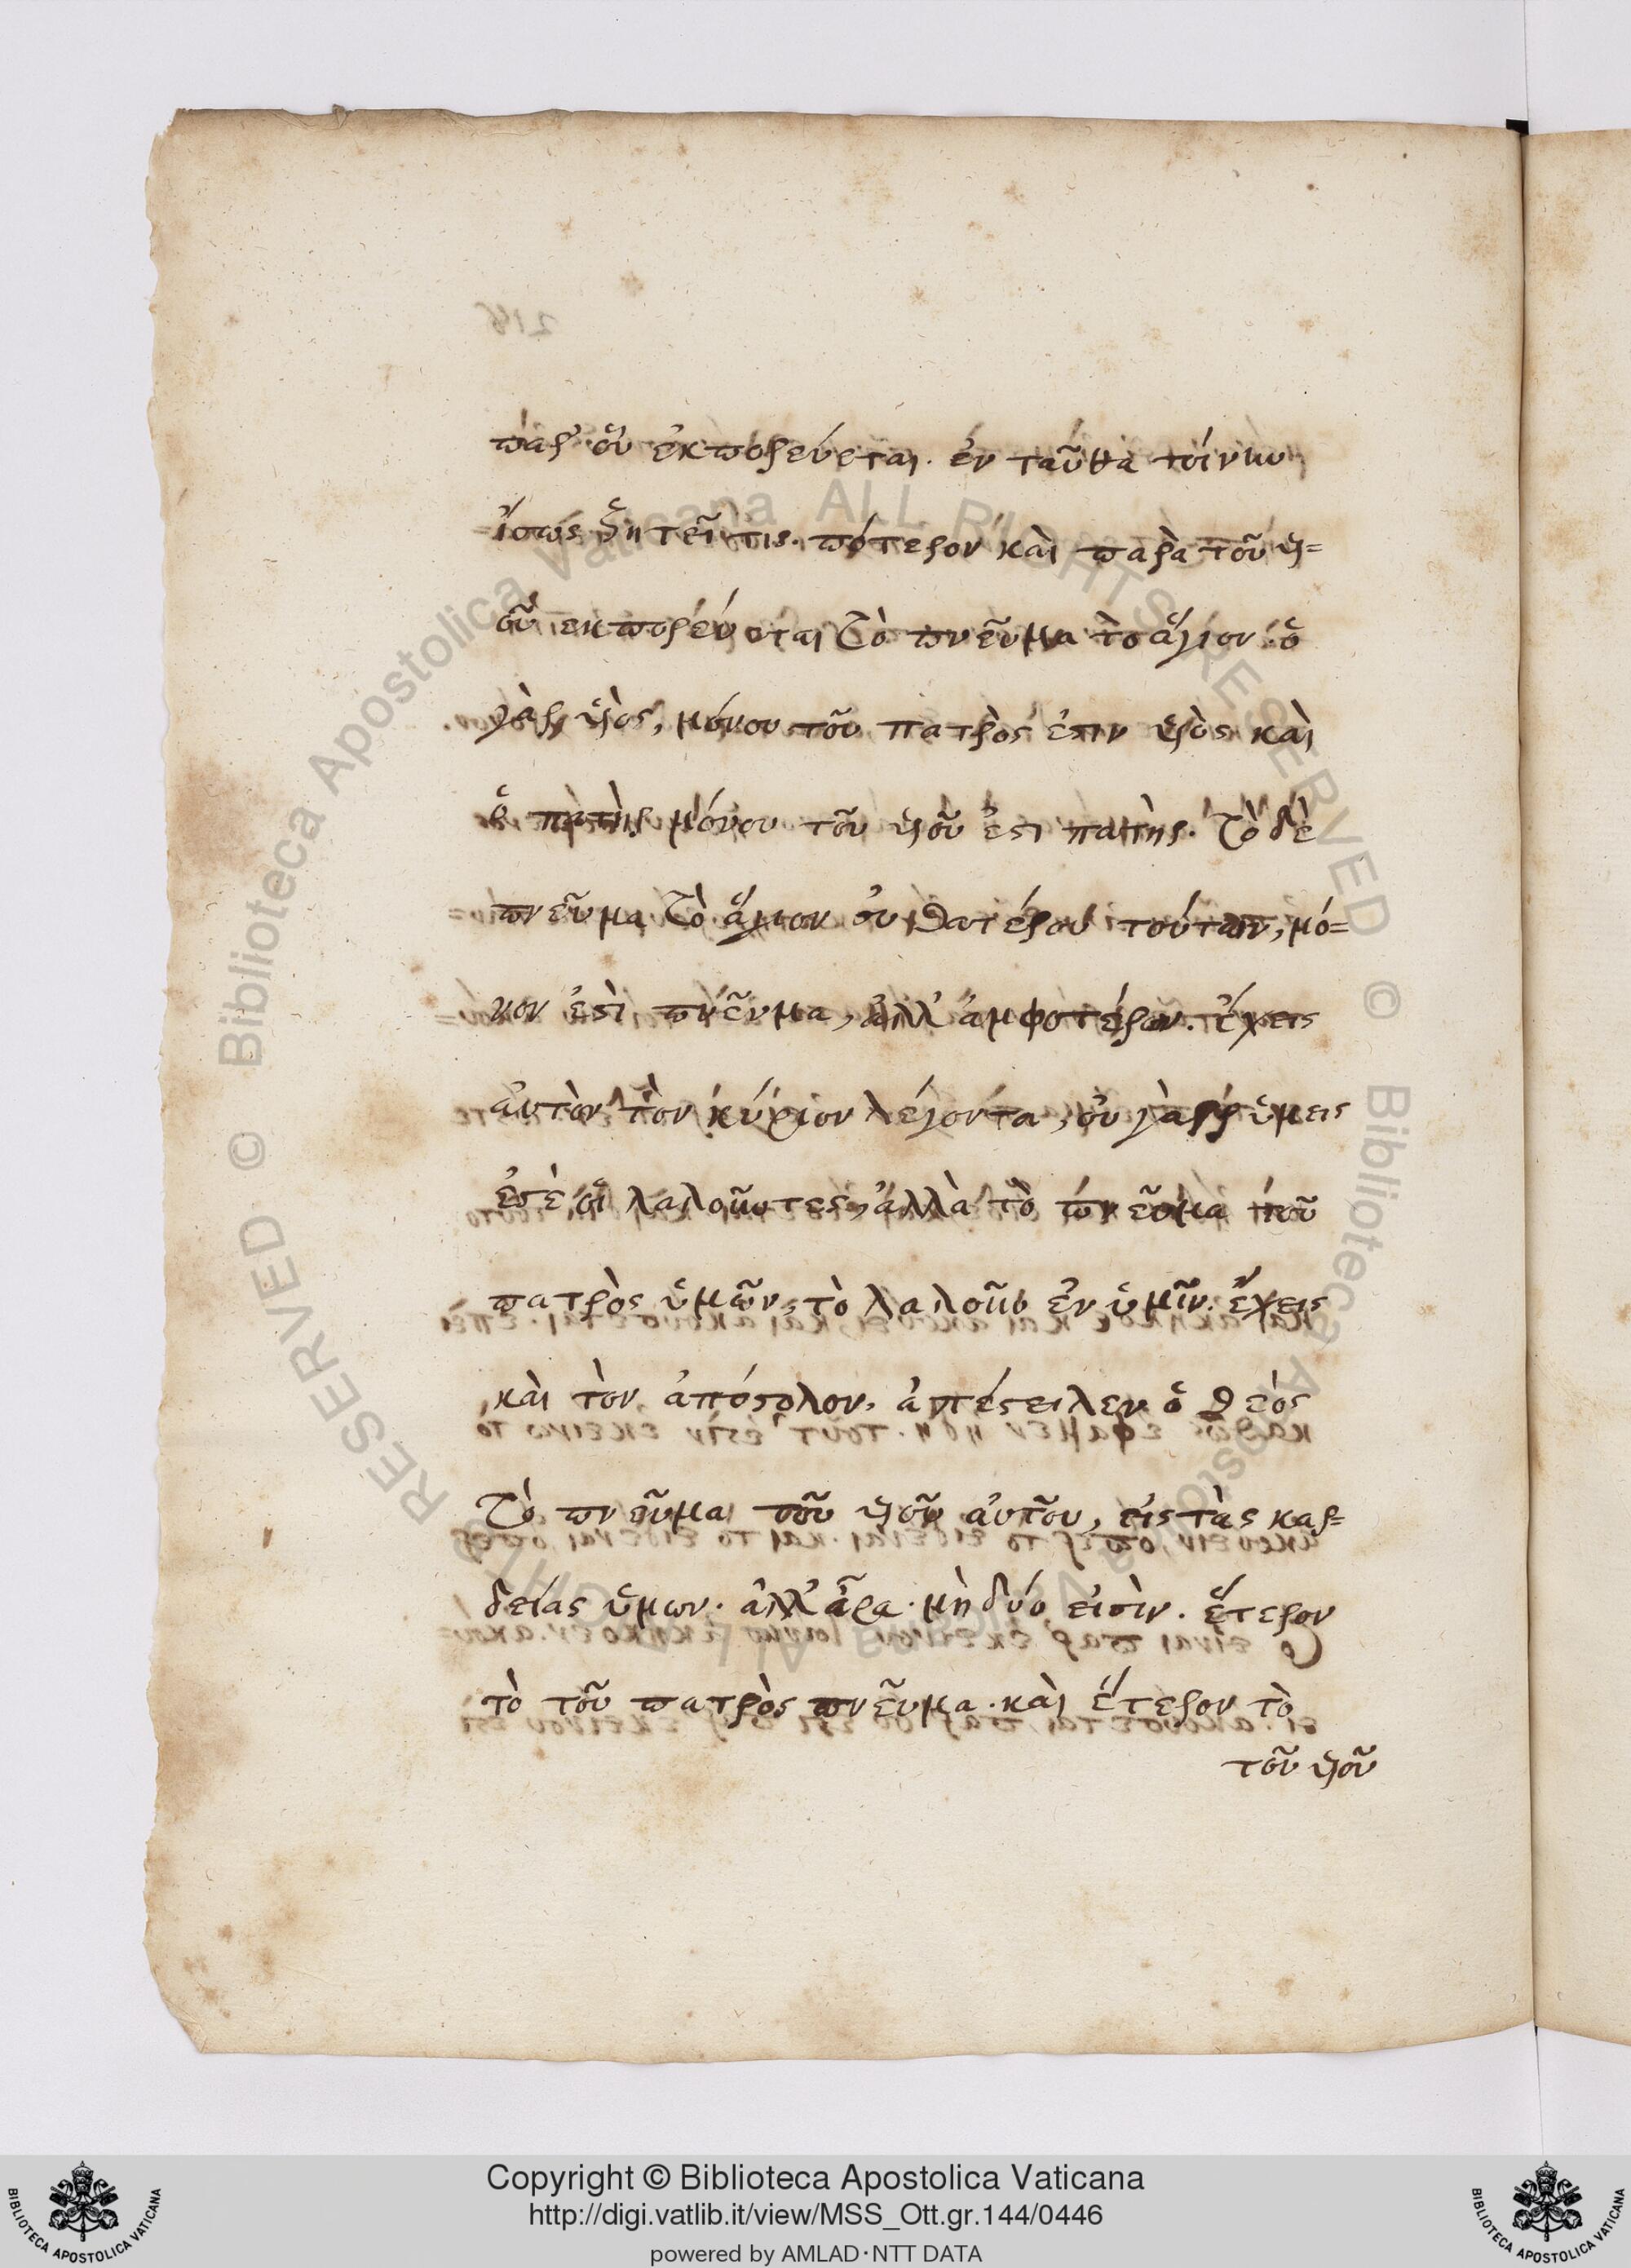 παρ' οὗ ἐκπορεύεται. ἐν ταῦθα τοίνυν
ἴσως ζητεῖ τις. πότερον καὶ παρὰ τοῦ υἱ=
οῦ ἐκπορεύεται τὸ πνεῦμα τὸ ἅγιον. ὁ
γὰρ υἱὸς, μόνου τοῦ πατρὸς ἐστιν υἱὸς καὶ
ὁ πατὴρ μόνου τοῦ υἱοῦ ἐστι πατὴρ. τὸ δὲ
πνεῦμα τὸ ἅγιον οὐ θατέρου τούτων, μό=
νον ἐστὶ πνεῦμα, ἀλλ' ἀμφοτέρων. ἔχεις
αὐτὸν τὸν κύριον λέγοντα, οὐ γὰρ ὑμεῖς
ἐστὲ οἱ λαλοῦντες, ἀλλὰ τὸ πνεῦμα τοῦ
πατρὸς ὑμῶν, τὸ λαλοῦν ἐν ὑμῖν. ἔχεις
καὶ τὸν ἀπόστολον, ἀπέστειλεν ὁ θεὸς
τὸ πνεῦμα τοῦ υἱοῦ αὐτοῦ, εἰς τὰς καρ=
δείας ὑμων. ἀλλ' ἆρα. μὴ δύο εἰσὶν. ἕτερον
τὸ τοῦ πατρὸς πνεῦμα. καὶ ἕτερον τὸ
τοῦ υἱοῦ
Copyright © Biblioteca Apostolica Vaticana
http://digi.vatlib.it/view/MSS_Ott.gr.144/0446
powered by AMLAD·NTT DATA